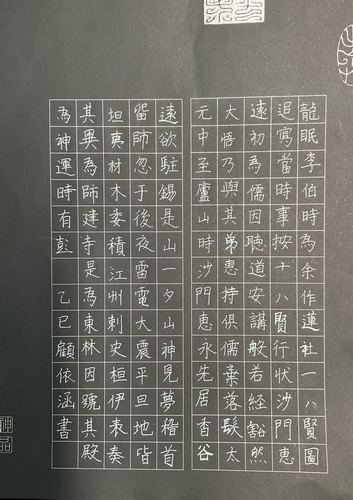 龍眠李伯時為余作蓮社一八賢圖
追寫當時事按十八賢行狀沙門惠
遠初為儒因聽道安講般若經豁然
大悟乃與其弟惠持俱儒棄落髮太
元中至廬山時沙門惠永先居香谷
遠欲駐錫是山一夕山神見夢稽首
留師忽于後夜雷電大震平旦地皆
坦夷材木委積江州刺史桓伊表奏
其異為師建寺是為東林因號其殿
為神運時有彭 乙巳顧依涵書